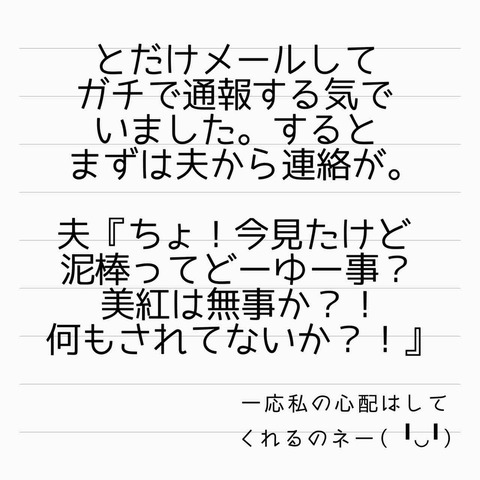 とだけメールして
ガチで通報する気で
いました。すると
まずは夫から連絡が。
夫『ちょ！今見たけど
泥棒ってどーゆー事？
美紅は無事か？！
何もされてないか？！』
一応私の心配はして
くれるのネー( ╹◡╹)